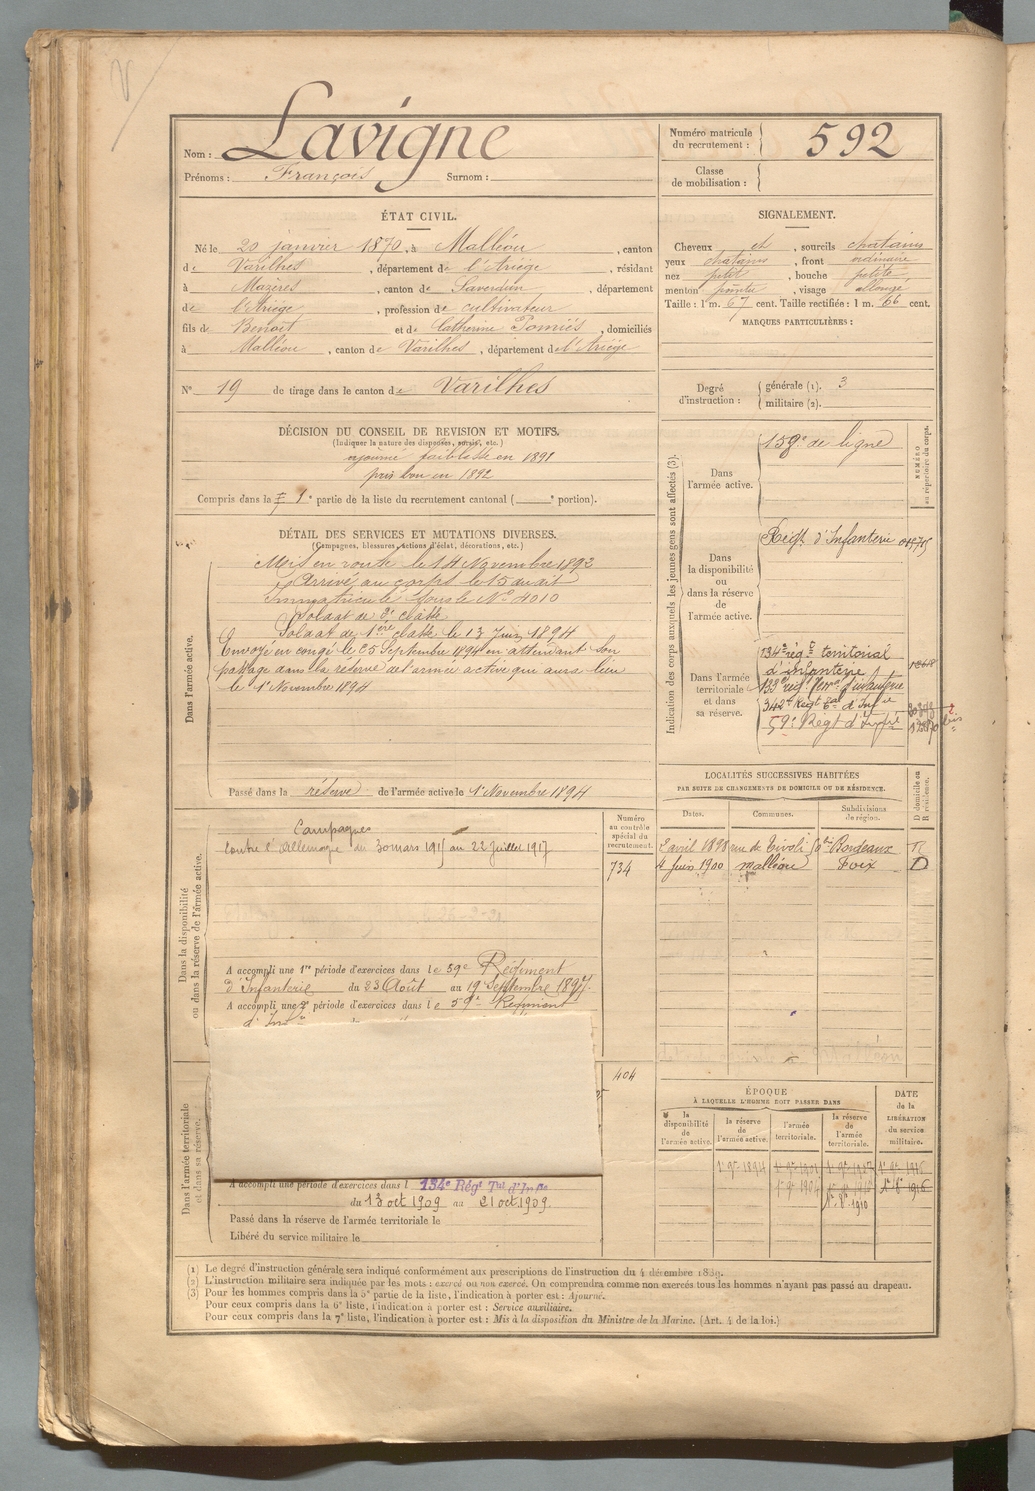 Nom : Lavigne
Prénoms : François Surnom :
Numéro matricule du recrutement : 592
Classe de mobilisation :
ÉTAT CIVIL.
Né le 20 janvier 1870, à Malléon, canton
de Varilhes, département de l'Ariège, résidant
à Mazères, canton de Saverdun, département
de l'Ariège, profession de cultivateur
fils de Benoit et de Catherine Pomiès, domiciliés
à Malléon, canton de Varilhes, département de l'Ariège
N° 19 de tirage dans le canton de Varilhes
SIGNALEMENT.
Cheveux et, sourcils chatains
yeux chatains, front ordinaire
nez petit, bouche petite
menton pointu, visage allongé
Taille : 1 m. 67 cent. Taille rectifiée : 1 m. 66 cent.
MARQUES PARTICULIÈRES :
Degré d'instruction : générale (1). 3
militaire (2).
DÉCISION DU CONSEIL DE REVISION ET MOTIFS.
(Indiquer la nature des dispenses, sursis, etc.)
ajourné faiblesse en 1891
pris bon en 1892
Compris dans la 1e partie de la liste du recrutement cantonal ( e portion).
DÉTAIL DES SERVICES ET MUTATIONS DIVERSES.
(Campagnes, blessures, actions d'éclat, décorations, etc.)
Dans l'armée active.
Mis en route le 14 Novembre 1892
Arrivé au corps le 15 du dit
Immatriculé sous le N° 4010
Soldat de 2e classe
Soldat de 1ère classe le 13 Juin 1894
Envoyé en congé le 25 Septembre 1894 en attendant son
passage dans la réserve de l'armée active qui aura lieu
le 1er Novembre 1894
Passé dans la réserve de l'armée active le 1er Novembre 1894
Indication des corps auxquels les jeunes gens sont affectés (3).
NUMÉRO au répertoire du corps.
Dans l'armée active.
159e de ligne
Dans la disponibilité ou dans la réserve de l'armée active.
Régt. d'Infanterie
Dans l'armée territoriale et dans sa réserve.
134e rég. territorial
d'infanterie
133e régt Terr. d'infanterie
342e Régt d'Infie
59e Regt d'Infie
LOCALITÉS SUCCESSIVES HABITÉES
PAR SUITE DE CHANGEMENTS DE DOMICILE OU DE RÉSIDENCE.
Dates. Communes. Subdivisions de région. D domicile ou R résidence.
2 avril 1898 rue de Tivoli Bordeaux R
4 Juin 1900 Malléon Foix D
Dans la disponibilité ou dans la réserve de l'armée active.
Numéro au contrôle spécial du recrutement.
734
Campagnes
contre l'Allemagne du 30 mars 1915 au 22 Juillet 1917
A accompli une 1re période d'exercices dans le 59e Régiment
d'Infanterie du 23 Août au 19 Septembre 1897.
A accompli une 2e période d'exercices dans le 59e Régiment
Dans l'armée territoriale et dans sa réserve.
404
A accompli une période d'exercices dans l 134e Régt Tal d'Infie
du 13 oct 1909 au 21 oct. 1909.
Passé dans la réserve de l'armée territoriale le
Libéré du service militaire le
ÉPOQUE
À LAQUELLE L'HOMME DOIT PASSER DANS
la disponibilité de l'armée active. la réserve de l'armée active. l'armée territoriale. la réserve de l'armée territoriale.
DATE de la LIBÉRATION du service militaire.
(1) Le degré d'instruction générale sera indiqué conformément aux prescriptions de l'instruction du 4 décembre 1889.
(2) L'instruction militaire sera indiquée par les mots : exercé ou non exercé. On comprendra comme non exercés tous les hommes n'ayant pas passé au drapeau.
(3) Pour les hommes compris dans la 5e partie de la liste, l'indication à porter est : Ajourné.
Pour ceux compris dans la 6e liste, l'indication à porter est : Service auxiliaire.
Pour ceux compris dans la 7e liste, l'indication à porter est : Mis à la disposition du Ministre de la Marine. (Art. 4 de la loi.)